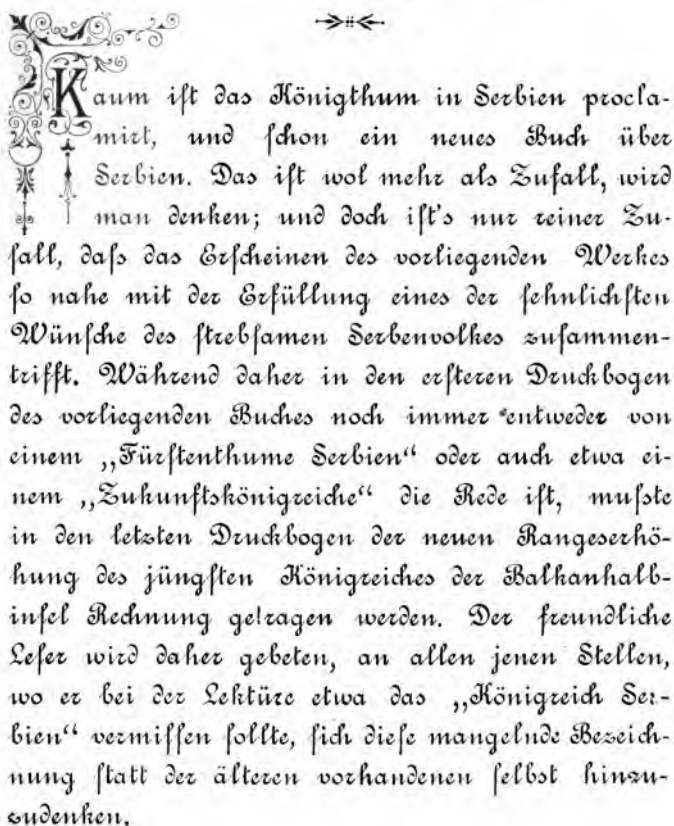 Kaum iſt das Königthum in Serbien procla-
mirt, und ſchon ein neues Buch über
Serbien. Das iſt wol mehr als Zufall, wird
man denken; und doch iſt's nur reiner Zu-
fall, daſs das Erſcheinen des vorliegenden Werkes
ſo nahe mit der Erfüllung eines der ſehnlichſten
Wünſche des ſtrebſamen Serbenvolkes zuſammen-
trifft. Während daher in den erſteren Druckbogen
des vorliegenden Buches noch immer entweder von
einem „Fürſtenthume Serbien“ oder auch etwa ei-
nem „Zukunftskönigreiche“ die Rede iſt, muſste
in den letzten Druckbogen der neuen Rangeserhö-
hung des jüngſten Königreiches der Balkanhalb-
inſel Rechnung getragen werden. Der freundliche
Leſer wird daher gebeten, an allen jenen Stellen,
wo er bei der Lektüre etwa das „Königreich Ser-
bien“ vermiſſen ſollte, ſich dieſe mangelnde Bezeich-
nung ſtatt der älteren vorhandenen ſelbſt hinzu-
zudenken.